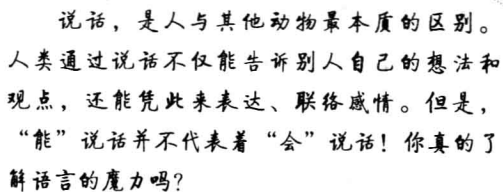 说话，是人与其他动物最本质的区别。
人类通过说话不仅能告诉别人自己的想法和
观点，还能凭此来表达、联络感情。但是，
“能”说话并不代表着“会”说话！你真的了
解语言的魔力吗？